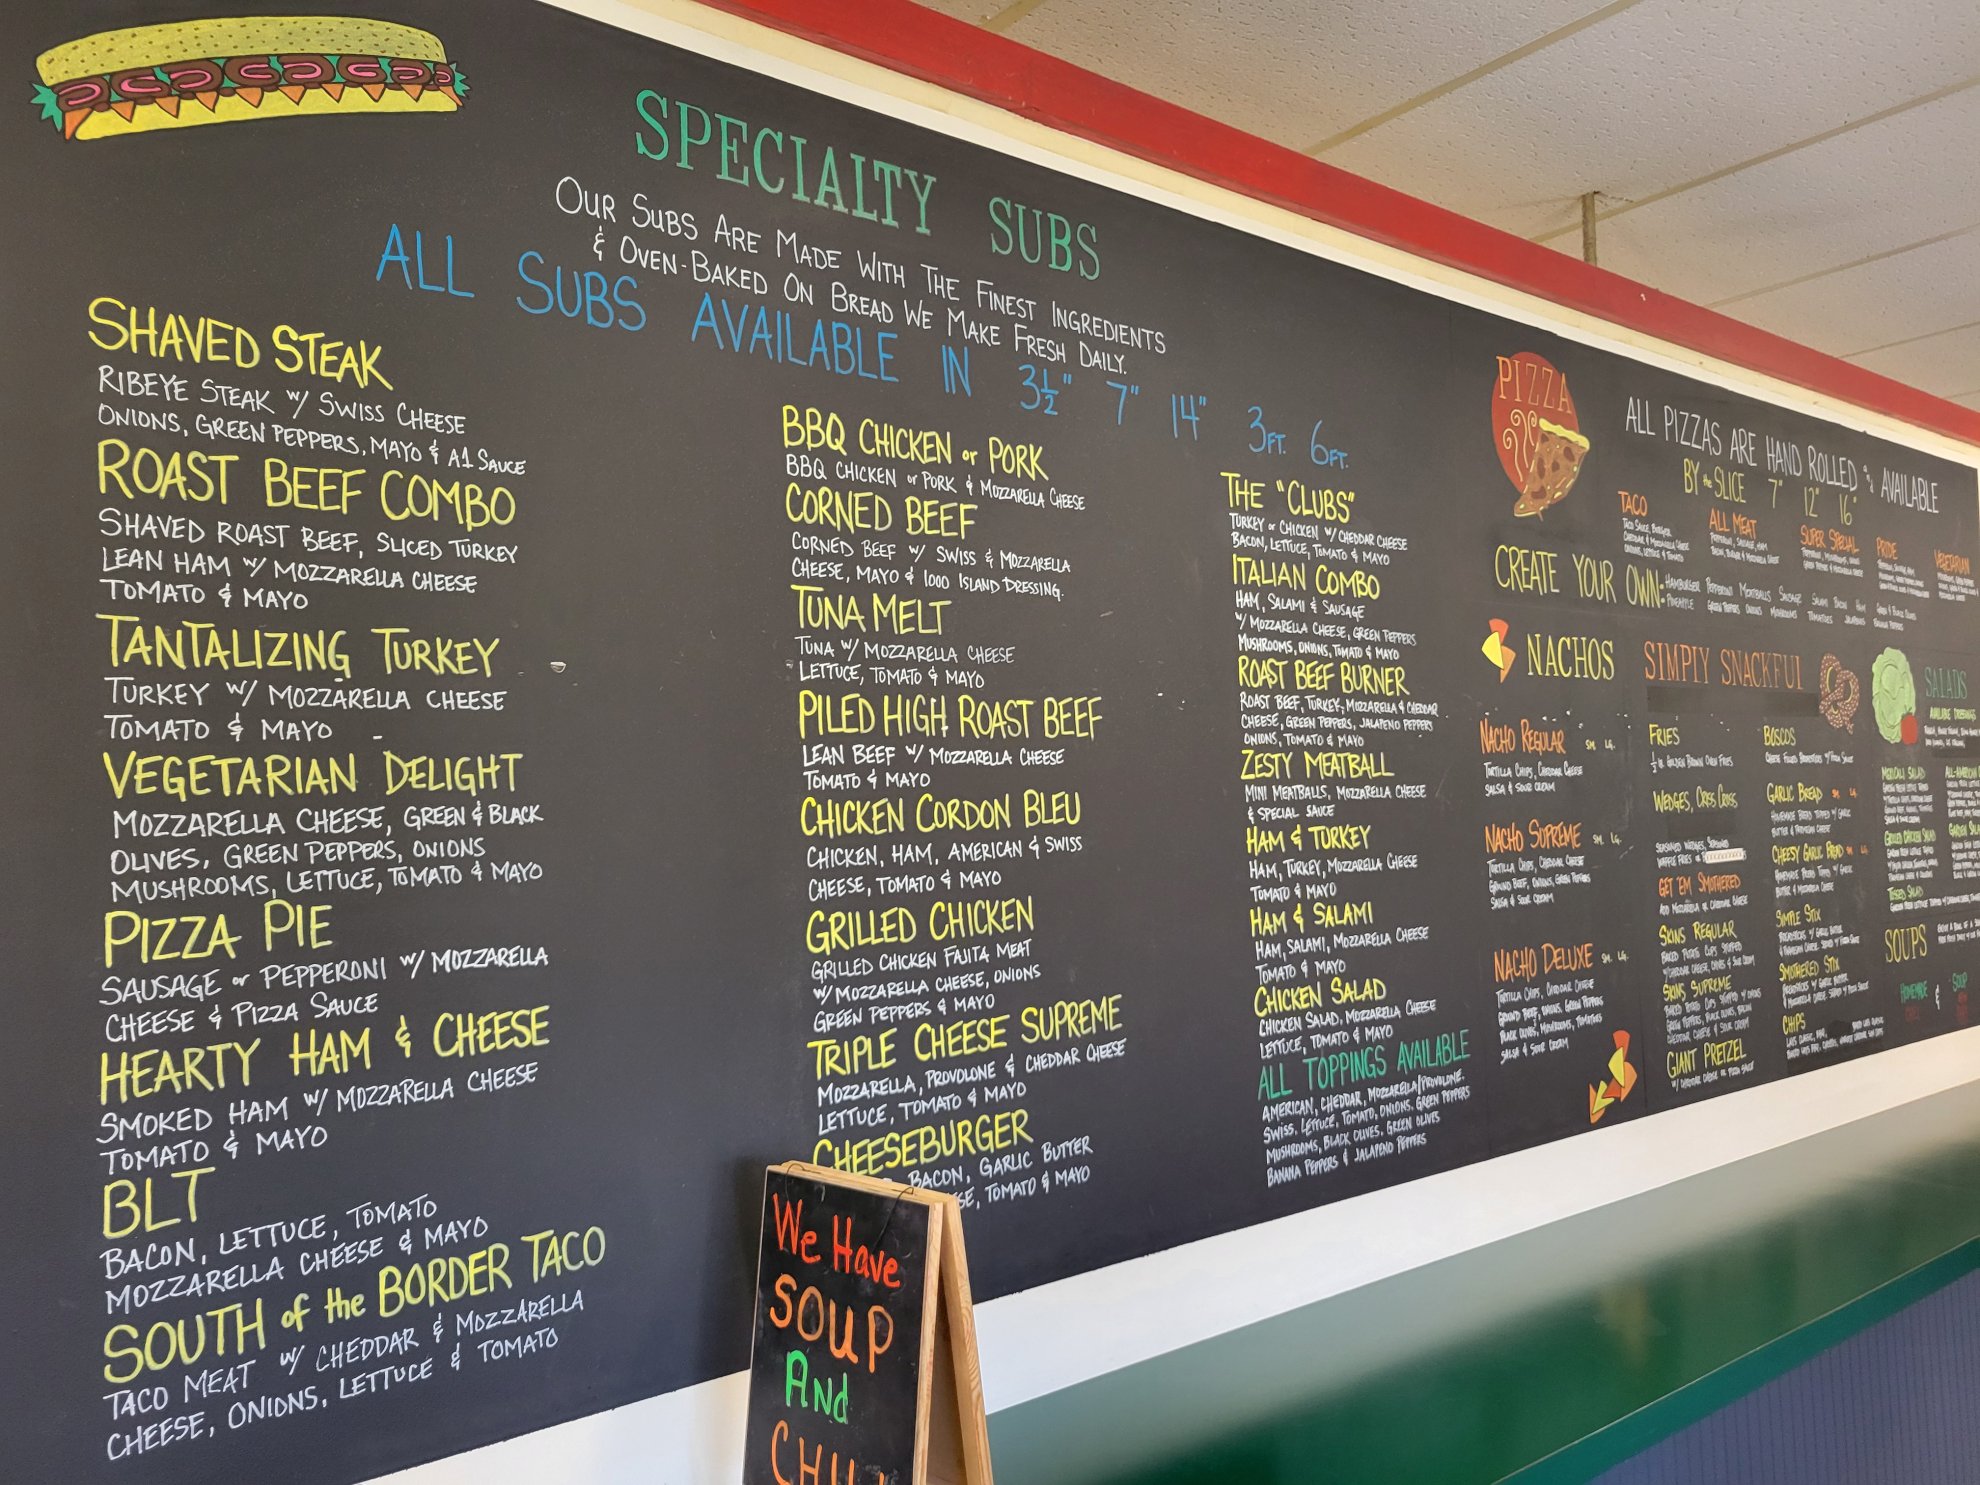 SPECIALTY SUBS
OUR SUBS ARE MADE WITH THE FINEST INGREDIENTS
& OVEN-BAKED ON BREAD WE MAKE FRESH DAILY.
ALL SUBS AVAILABLE IN 3½" 7" 14" 3FT. 6FT.
SHAVED STEAK
RIBEYE STEAK W/ SWISS CHEESE
ONIONS, GREEN PEPPERS, MAYO & A1 SAUCE
ROAST BEEF COMBO
SHAVED ROAST BEEF, SLICED TURKEY
LEAN HAM W/ MOZZARELLA CHEESE
TOMATO & MAYO
TANTALIZING TURKEY
TURKEY W/ MOZZARELLA CHEESE
TOMATO & MAYO
VEGETARIAN DELIGHT
MOZZARELLA CHEESE, GREEN & BLACK
OLIVES, GREEN PEPPERS, ONIONS
MUSHROOMS, LETTUCE, TOMATO & MAYO
PIZZA PIE
SAUSAGE or PEPPERONI W/ MOZZARELLA
CHEESE & PIZZA SAUCE
HEARTY HAM & CHEESE
SMOKED HAM W/ MOZZARELLA CHEESE
TOMATO & MAYO
BLT
BACON, LETTUCE, TOMATO
MOZZARELLA CHEESE & MAYO
SOUTH of the BORDER TACO
TACO MEAT W/ CHEDDAR & MOZZARELLA
CHEESE, ONIONS, LETTUCE & TOMATO
BBQ CHICKEN or PORK
BBQ CHICKEN or PORK & MOZZARELLA CHEESE
CORNED BEEF
CORNED BEEF W/ SWISS & MOZZARELLA
CHEESE, MAYO & 1000 ISLAND DRESSING.
TUNA MELT
TUNA W/ MOZZARELLA CHEESE
LETTUCE, TOMATO & MAYO
PILED HIGH ROAST BEEF
LEAN BEEF W/ MOZZARELLA CHEESE
TOMATO & MAYO
CHICKEN CORDON BLEU
CHICKEN, HAM, AMERICAN & SWISS
CHEESE, TOMATO & MAYO
GRILLED CHICKEN
GRILLED CHICKEN FAJITA MEAT
W/ MOZZARELLA CHEESE, ONIONS
GREEN PEPPERS & MAYO
TRIPLE CHEESE SUPREME
MOZZARELLA, PROVOLONE & CHEDDAR CHEESE
LETTUCE, TOMATO & MAYO
CHEESEBURGER
BACON, GARLIC BUTTER
TOMATO & MAYO
THE "CLUBS"
TURKEY or CHICKEN W/ CHEDDAR CHEESE
BACON, LETTUCE, TOMATO & MAYO
ITALIAN COMBO
HAM, SALAMI & SAUSAGE
W/ MOZZARELLA CHEESE, GREEN PEPPERS
MUSHROOMS, ONIONS, TOMATO & MAYO
ROAST BEEF BURNER
ROAST BEEF, TURKEY, MOZZARELLA & CHEDDAR
CHEESE, GREEN PEPPERS, JALAPENO PEPPERS
ONIONS, TOMATO & MAYO
ZESTY MEATBALL
MINI MEATBALLS, MOZZARELLA CHEESE
& SPECIAL SAUCE
HAM & TURKEY
HAM, TURKEY, MOZZARELLA CHEESE
TOMATO & MAYO
HAM & SALAMI
HAM, SALAMI, MOZZARELLA CHEESE
TOMATO & MAYO
CHICKEN SALAD
CHICKEN SALAD, MOZZARELLA CHEESE
LETTUCE, TOMATO & MAYO
ALL TOPPINGS AVAILABLE
AMERICAN, CHEDDAR, MOZZARELLA/PROVOLONE.
SWISS. LETTUCE, TOMATO, ONIONS. GREEN PEPPERS
MUSHROOMS, BLACK OLIVES. GREEN OLIVES
BANANA PEPPERS & JALAPENO PEPPERS
We Have
SOUP
And
PIZZA
ALL PIZZAS ARE HAND ROLLED & AVAILABLE
BY the SLICE 7" 12" 16"
TACO
ALL MEAT
SUPER SPECIAL
PRIDE
VEGETARIAN
CREATE YOUR OWN:
HAMBURGER PEPPERONI MEATBALLS SAUSAGE SALAMI BACON HAM
PINEAPPLE GREEN PEPPERS ONIONS MUSHROOMS TOMATOES JALAPENOS BANANA PEPPERS
NACHOS
NACHO REGULAR SM. LG.
TORTILLA CHIPS, CHEDDAR CHEESE
SALSA & SOUR CREAM
NACHO SUPREME SM. LG.
TORTILLA CHIPS, CHEDDAR CHEESE
GROUND BEEF, ONIONS, GREEN PEPPERS
SALSA & SOUR CREAM
NACHO DELUXE SM. LG.
TORTILLA CHIPS, CHEDDAR CHEESE
GROUND BEEF, ONIONS, GREEN PEPPERS
BLACK OLIVES, MUSHROOMS, TOMATOES
SALSA & SOUR CREAM
SIMPLY SNACKFUL
FRIES
½ lb. GOLDEN BROWN OVEN FRIES
WEDGES, CRISS CROSS
GET 'EM SMOTHERED
ADD MOZZARELLA or CHEDDAR CHEESE
SKINS REGULAR
SKINS SUPREME
GIANT PRETZEL
W/ CHEDDAR CHEESE or PIZZA SAUCE
BOSCOS
GARLIC BREAD SM. LG.
HOMEMADE BREAD TOPPED W/ GARLIC
BUTTER & PARMESAN CHEESE
CHEESY GARLIC BREAD SM. LG.
SIMPLE STIX
SMOTHERED STIX
CHIPS
SALADS
MEXICALI SALAD
GRILLED CHICKEN SALAD
TOSSED SALAD
SOUPS